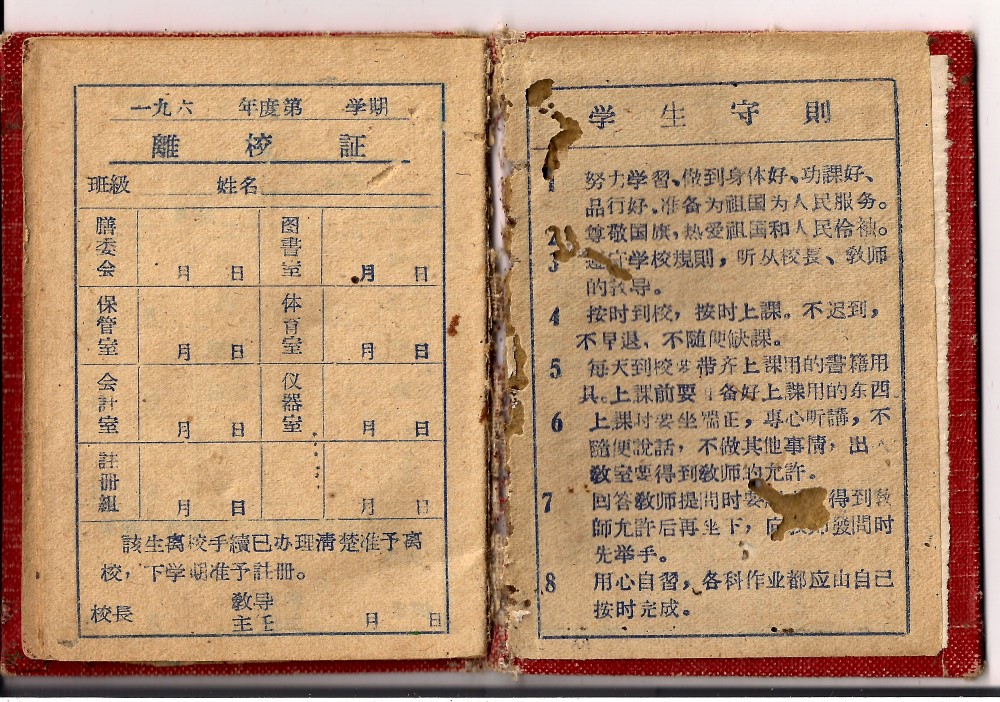 一九六 年度第 学期
離校証
班級 姓名
膳委会 月 日 图書室 月 日
保管室 月 日 体育室 月 日
会計室 月 日 仪器室 月 日
註册組 月 日 月 日
該生离校手續已办理清楚准予离
校，下学期准予註册。
校長 教导主任 月 日
学生守則
1 努力学習、做到身体好、功課好、
品行好、准备为祖国为人民服务。
2 尊敬国旗，热爱祖国和人民伶袖。
3 守学校規則，听从校長、教师
的教导。
4 按时到校，按时上課。不迟到，
不早退，不随便缺課。
5 每天到校要带齐上課用的書籍用
具。上課前要 备好上課用的东西
6 上課时要坐端正，專心听講，不
隨便說話，不做其他事情，出
教室要得到教师的允許。
7 回答教师提問时要 得到教
師允許后再坐下，向 師發問时
先举手。
8 用心自習，各科作业都应由自己
按时完成。